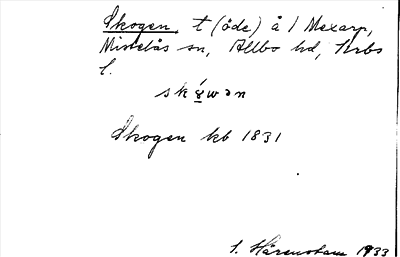 Skogen, t (öde) å 1 Mexarp,
Mistelås sn, Allbo hd, Krbs
l.
skɤ́wən
Skogen kb 1831
S. Härenstam 1933